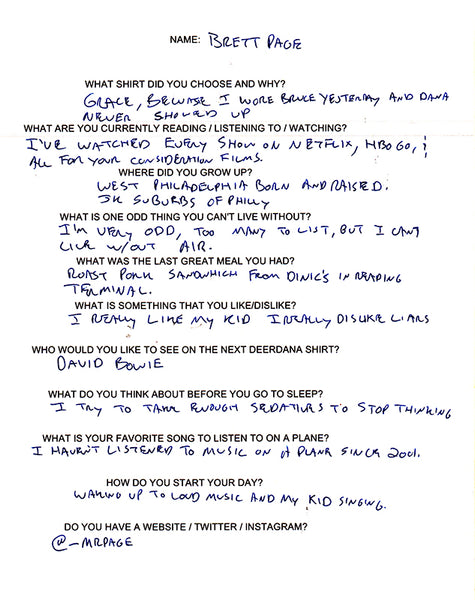 NAME: BRETT PAGE
WHAT SHIRT DID YOU CHOOSE AND WHY?
GRACE, BECAUSE I WORE BRUCE YESTERDAY AND DANA
NEVER SHOWED UP
WHAT ARE YOU CURRENTLY READING / LISTENING TO / WATCHING?
I'VE WATCHED EVERY SHOW ON NETFLIX, HBO GO, &
ALL FOR YOUR CONSIDERATION FILMS.
WHERE DID YOU GROW UP?
WEST PHILADELPHIA BORN AND RAISED.
JK SUBURBS OF PHILLY
WHAT IS ONE ODD THING YOU CAN'T LIVE WITHOUT?
I'M VERY ODD, TOO MANY TO LIST, BUT I CAN'T
LIVE W/OUT AIR.
WHAT WAS THE LAST GREAT MEAL YOU HAD?
ROAST PORK SANDWHICH FROM DINIC'S IN READING
TERMINAL.
WHAT IS SOMETHING THAT YOU LIKE/DISLIKE?
I REALLY LIKE MY KID I REALLY DISLIKE LIARS
WHO WOULD YOU LIKE TO SEE ON THE NEXT DEERDANA SHIRT?
DAVID BOWIE
WHAT DO YOU THINK ABOUT BEFORE YOU GO TO SLEEP?
I TRY TO TAKE ENOUGH SEDATIVES TO STOP THINKING
WHAT IS YOUR FAVORITE SONG TO LISTEN TO ON A PLANE?
I HAVEN'T LISTENED TO MUSIC ON A PLANE SINCE 2001.
HOW DO YOU START YOUR DAY?
WAKING UP TO LOUD MUSIC AND MY KID SINGING.
DO YOU HAVE A WEBSITE / TWITTER / INSTAGRAM?
@_MRPAGE